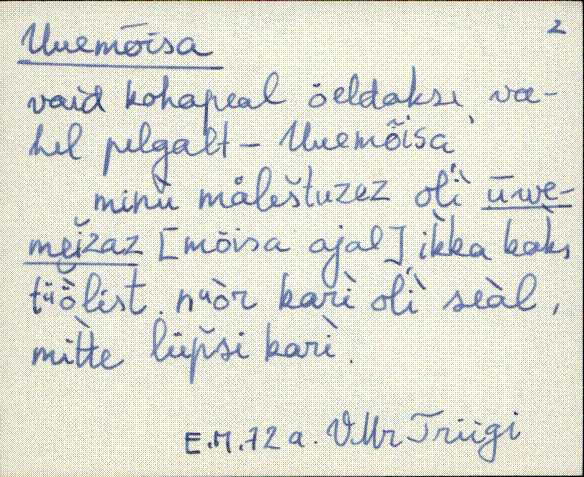 2
Uuemõisa
vaid kohapeal öeldakse væ-
hel pelgalt - Uuemõisa
minù måleštuzez olì ūwe-
meizaz [mõisa ajal] ikka kàks
tüölist. nuòr karì olì seàl,
mìtte lüpši karì.
E.M. 72 a. VMr Triigi